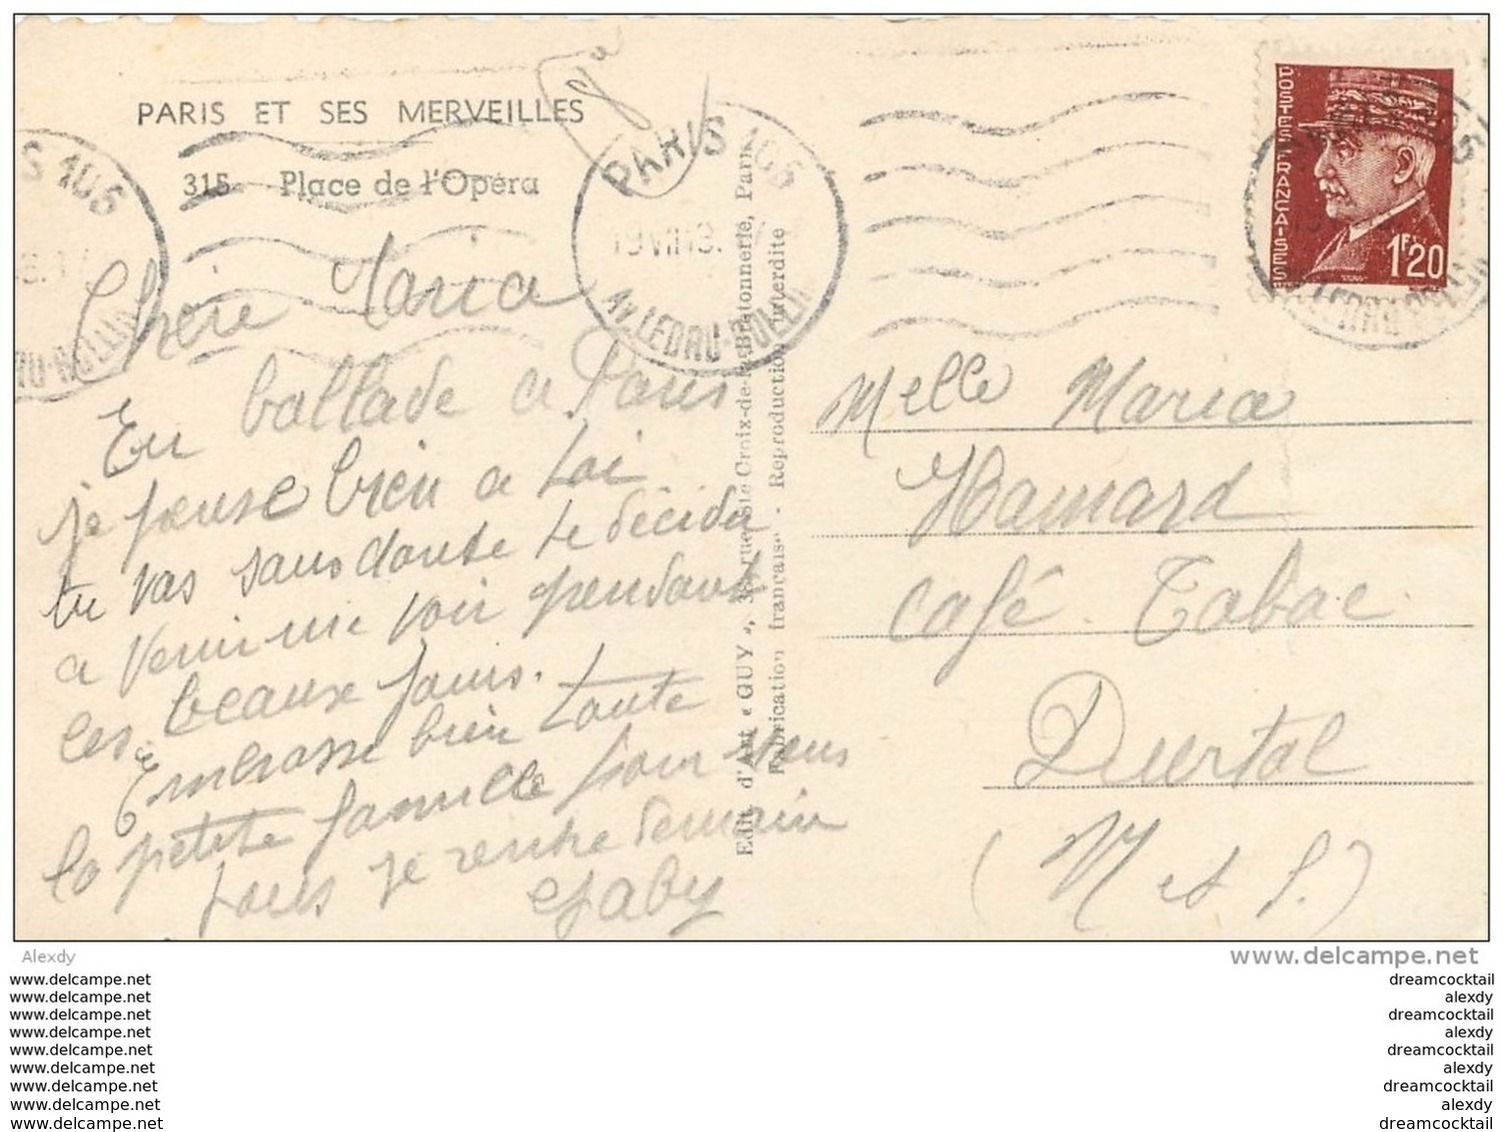 PARIS ET SES MERVEILLES
315 Place de l'Opéra
PARIS 105
19 VII 18.
Av LEDRU-ROLLIN
S 105
POSTES FRANÇAISES
1F20
Chère Maria
En ballade a Paris
je pense bien a toi
tu vas sans doute te décider
a venir me voir pendant
les beaux jours.
Embrasse bien toute
la petite famille pour nous
je rentre demain
Gaby
Edit. d'Art « GUY », rue Ste-Croix-de-la-Bretonnerie, Paris
Fabrication française - Reproduction interdite
Melle Maria
Hamard
café Tabac
Durtal
(M et L)
Alexdy
www.delcampe.net
www.delcampe.net
www.delcampe.net
www.delcampe.net
www.delcampe.net
www.delcampe.net
www.delcampe.net
www.delcampe.net
www.delcampe.net
www.delcampe.net
dreamcocktail
alexdy
dreamcocktail
alexdy
dreamcocktail
alexdy
dreamcocktail
alexdy
dreamcocktail